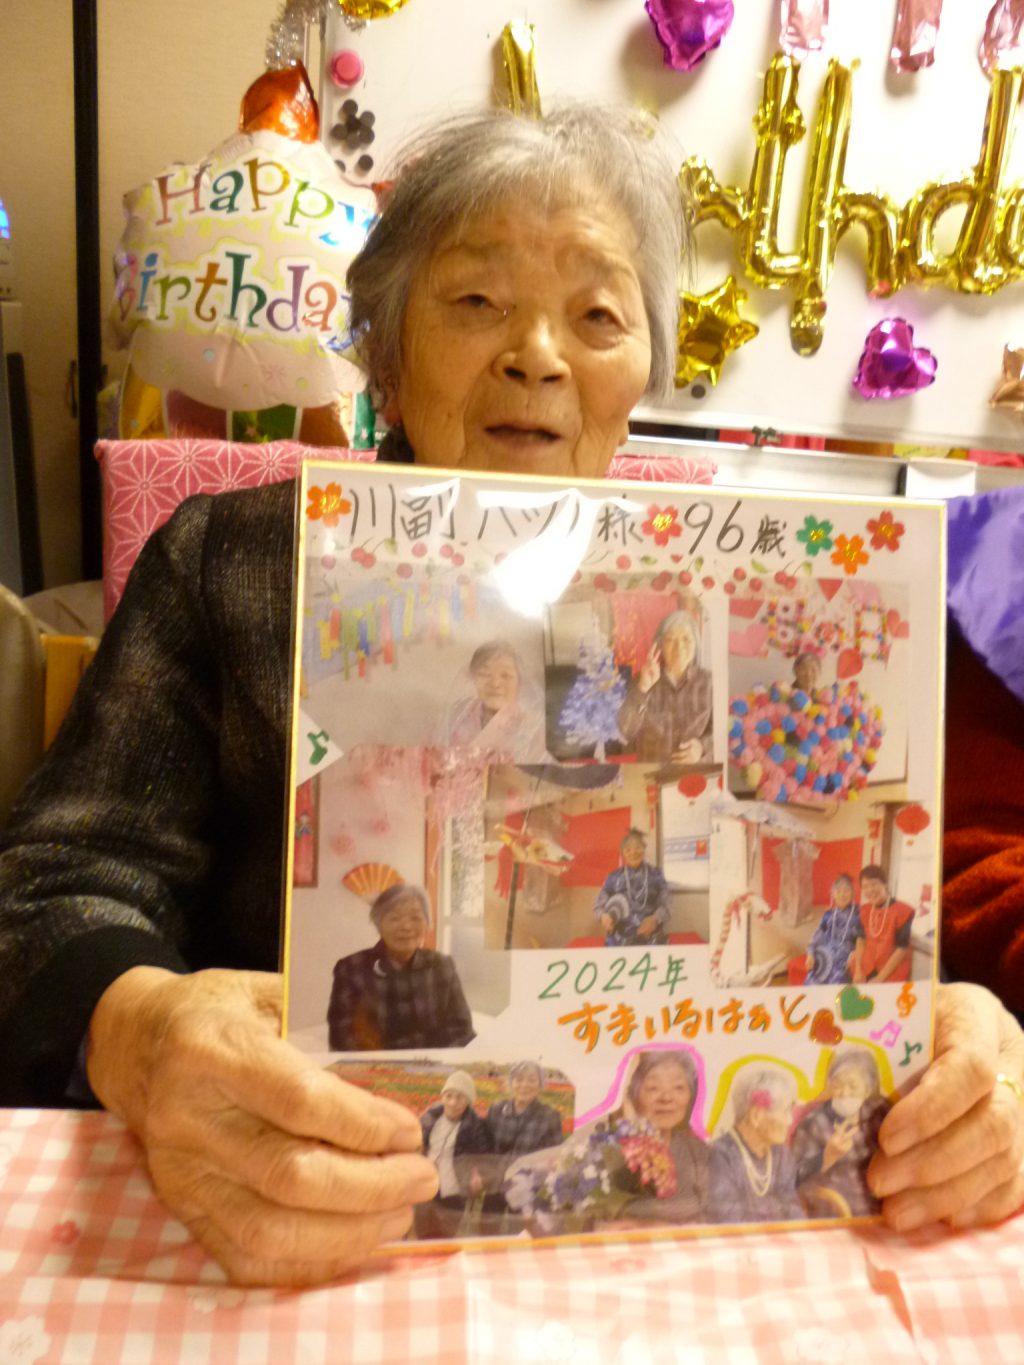 Happy
Birthday
rthd
川副 ハツノ様 96歳
母の日
2024年
すまいるはぁと